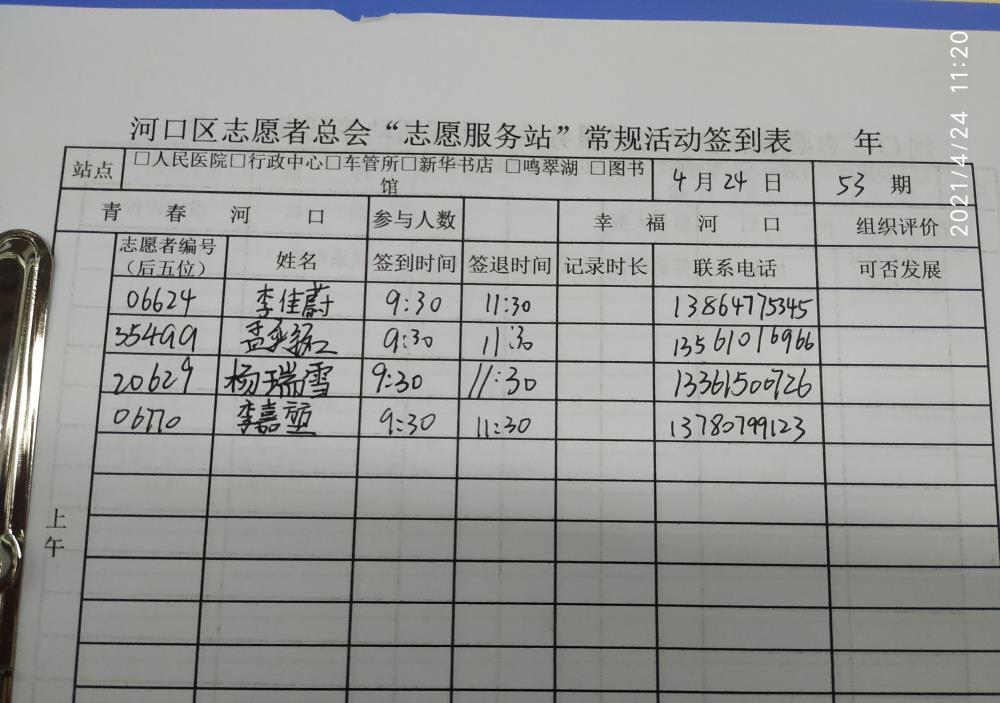 2021/4/24 11:20
河口区志愿者总会“志愿服务站”常规活动签到表 年
站点 □人民医院□行政中心□车管所□新华书店 □鸣翠湖 □图书馆 4月24日 53 期
青 春 河 口 参与人数 幸 福 河 口 组织评价
志愿者编号（后五位） 姓名 签到时间 签退时间 记录时长 联系电话 可否发展
06624 李佳蔚 9:30 11:30 13864775345
35499 孟 9:30 11:30 13561016966
20629 杨瑞雪 9:30 11:30 13361500726
06770 李嘉堃 9:30 11:30 13780799123
上午